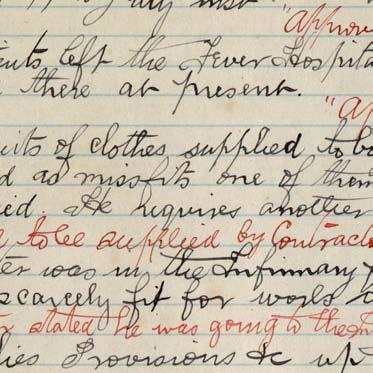 "Approv
ents left the Fever Hospita
there at present.
"Ap
uits of clothes supplied to bo
d as missfits one of them
ied. He requires another
to be supplied by Contract
ter was in the Infirmary
scarcely fit for work
stated he was going to the
lies Provisions &c up